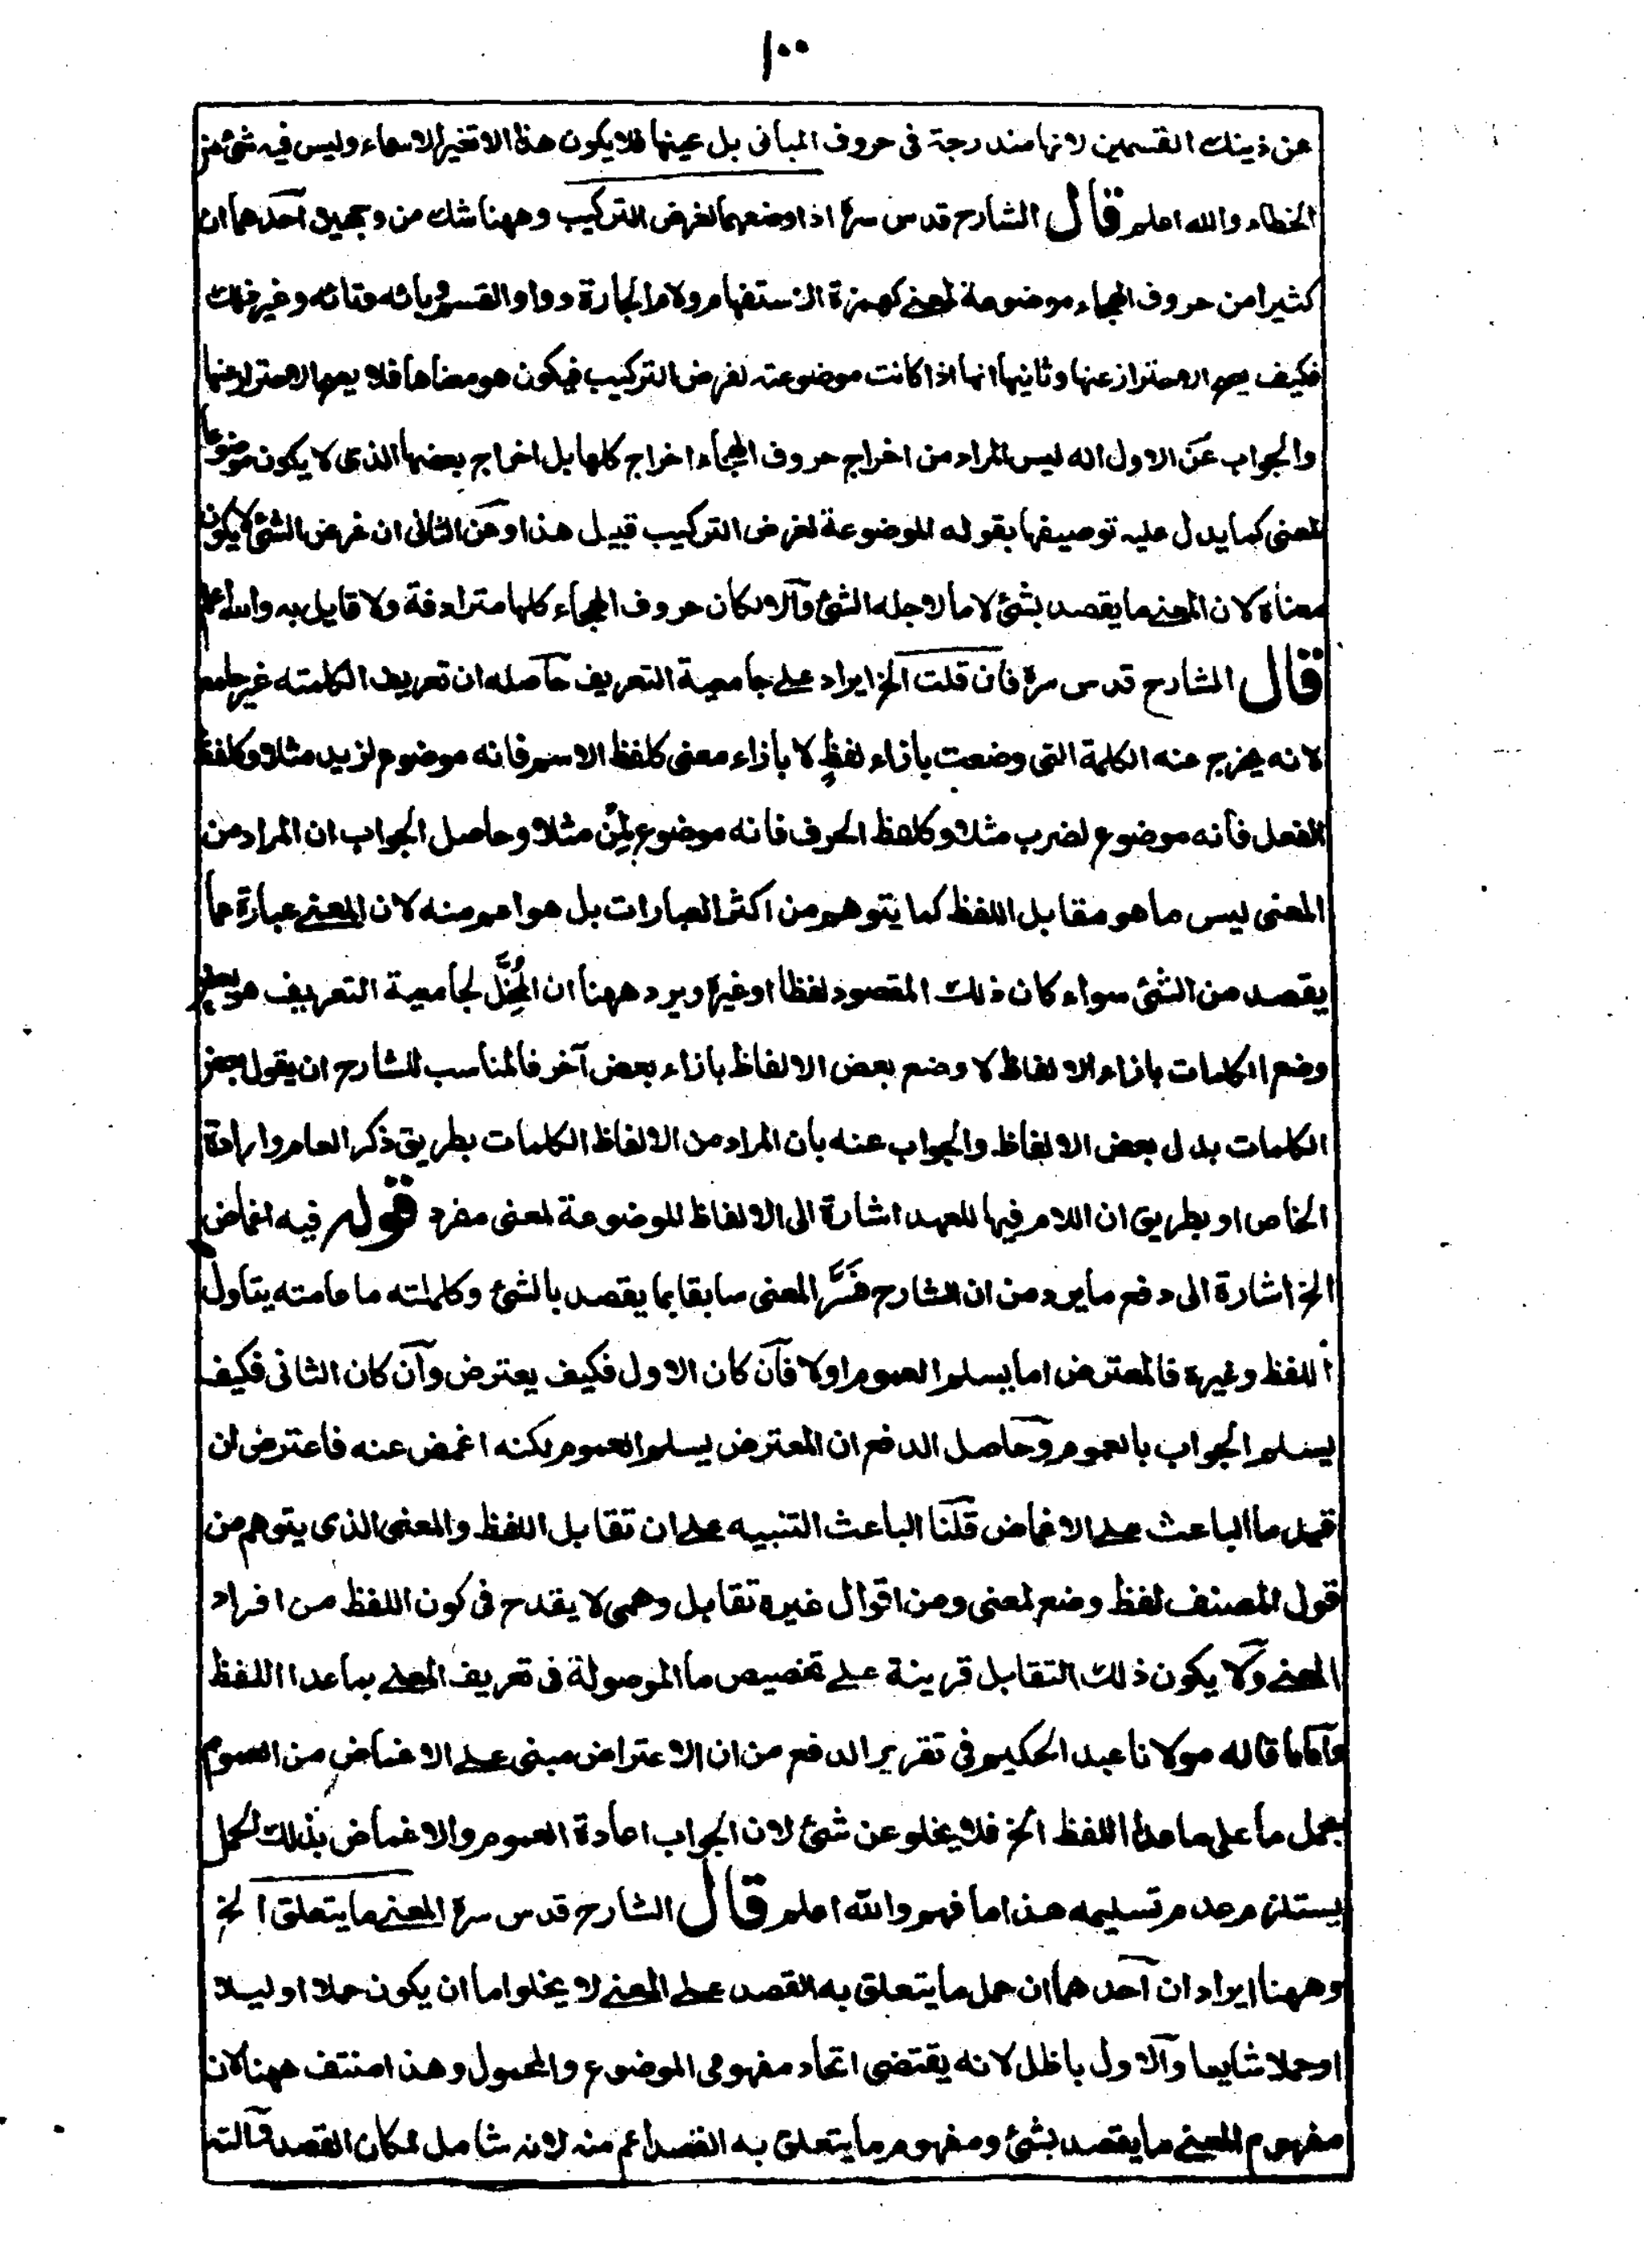 ١٠٠
عن ذينك القسمين لانها مندرجة فى حروف المبانى بل عينها فلا يكون هذا الا تغير الاسماء وليس فيه شئ من
الخطاء والله اعلم قال الشارح قدس سره اذا وضعهما لغرض التركيب وههنا شك من وجهين احدهما ان
كثيرا من حروف الهجاء موضوعة لمعنى كهمزة الاستفهام ولام الجارة وواو القسم وبائه وتائه وغير ذلك
فكيف يصح الاحتراز عنها وثانيها انها اذا كانت موضوعته لغرض التركيب فيكون هو معناها فلا يصح الاحتراز عنها
والجواب عن الاول انه ليس المراد من اخراج حروف الهجاء اخراج كلها بل اخراج بعضها الذى لا يكون موضوعا
لمعنى كما يدل عليه توصيفها بقوله الموضوعة لغرض التركيب قبيل هذا وعن الثانى ان غرض الشئ لا يكون
معناه لان المعنى ما يقصد بشئ لا ما لاجله الشئ والا لكان حروف الهجاء كلها مترادفة ولا قايل به والله اعلم
قال الشارح قدس سره فان قلت الخ ايراد على جامعية التعريف حاصله ان تعريف الكلمته غير جامع
لانه يخرج عنه الكلمة التى وضعت بأزاء لفظٍ لا بأزاء معنى كلفظ الاسم فانه موضوع لزيد مثلا وكلفظ
الفعل فأنه موضوع لضرب مثلا وكلفظ الحرف فانه موضوع لِمِنْ مثلا وحاصل الجواب ان المراد من
المعنى ليس ما هو مقابل اللفظ كما يتوهم من اكثر العبارات بل هو اعم منه لان المعنى عبارة عما
يقصد من الشئ سواء كان ذلك المقصود لفظا او غيره ويرد ههنا ان المُخِلَّ لجامعية التعريف هو بعض
وضع الكلمات بازاء الالفاظ لا وضع بعض الالفاظ بازاء بعض آخر فالمناسب للشارح ان يقول بعض
الكلمات بدل بعض الالفاظ والجواب عنه بان المراد من الالفاظ الكلمات بطريق ذكر العام وارادة
الخاص او بطريق ان اللام فيها للعهد اشارة الى الالفاظ الموضوعة لمعنى مفرد قوله فيه اغماض
الخ اشارة الى دفع ما يرد من ان الشارح فَسَّر المعنى سابقا بما يقصد بالشئ وكلمته ما عامته يتأول
اللفظ وغيره فالمعترض اما يسلم العموم اولا فان كان الاول فكيف يعترض وان كان الثانى فكيف
يسلم الجواب بالعموم وحاصل الدفع ان المعترض يسلم العموم لكنه اغمض عنه فاعترض ان
قيل ما الباعث على الاغماض قلنا الباعث التنبيه على ان تقابل اللفظ والمعنى الذى يتوهم من
قول المصنف لفظ وضع لمعنى ومن اقوال غيره تقابل وهمى لا يقدح فى كون اللفظ من افراد
المعنى ولا يكون ذلك التقابل قرينة على تخصيص ما الموصولة فى تعريف المعنى بما عدا اللفظ
واما ما قاله مولانا عبد الحكيم فى تقرير الدفع من ان الاعتراض مبنى على الاغماض من العموم
بحمل ما على ما عدا اللفظ الخ فلا يخلو عن شئ لان الجواب اعادة العموم والاغماض بذلك الحمل
يستلزم عدم تسليمه هذا ما فهم والله اعلم قال الشارح قدس سره المعنى ما يتعلق الخ
وههنا ايراد ان احدهما ان حمل ما يتعلق به القصد على المعنى لا يخلوا ما ان يكون حملا اوليلا
او حملا شايعا والاول باطل لانه يقتضى اتحاد مفهومى الموضوع والمحمول وهذا منتف ههنا لان
مفهوم المعنى ما يقصد بشئ ومفهوم ما يتعلق به القصد اعم منه لانه شامل لمكان القصد وآلته